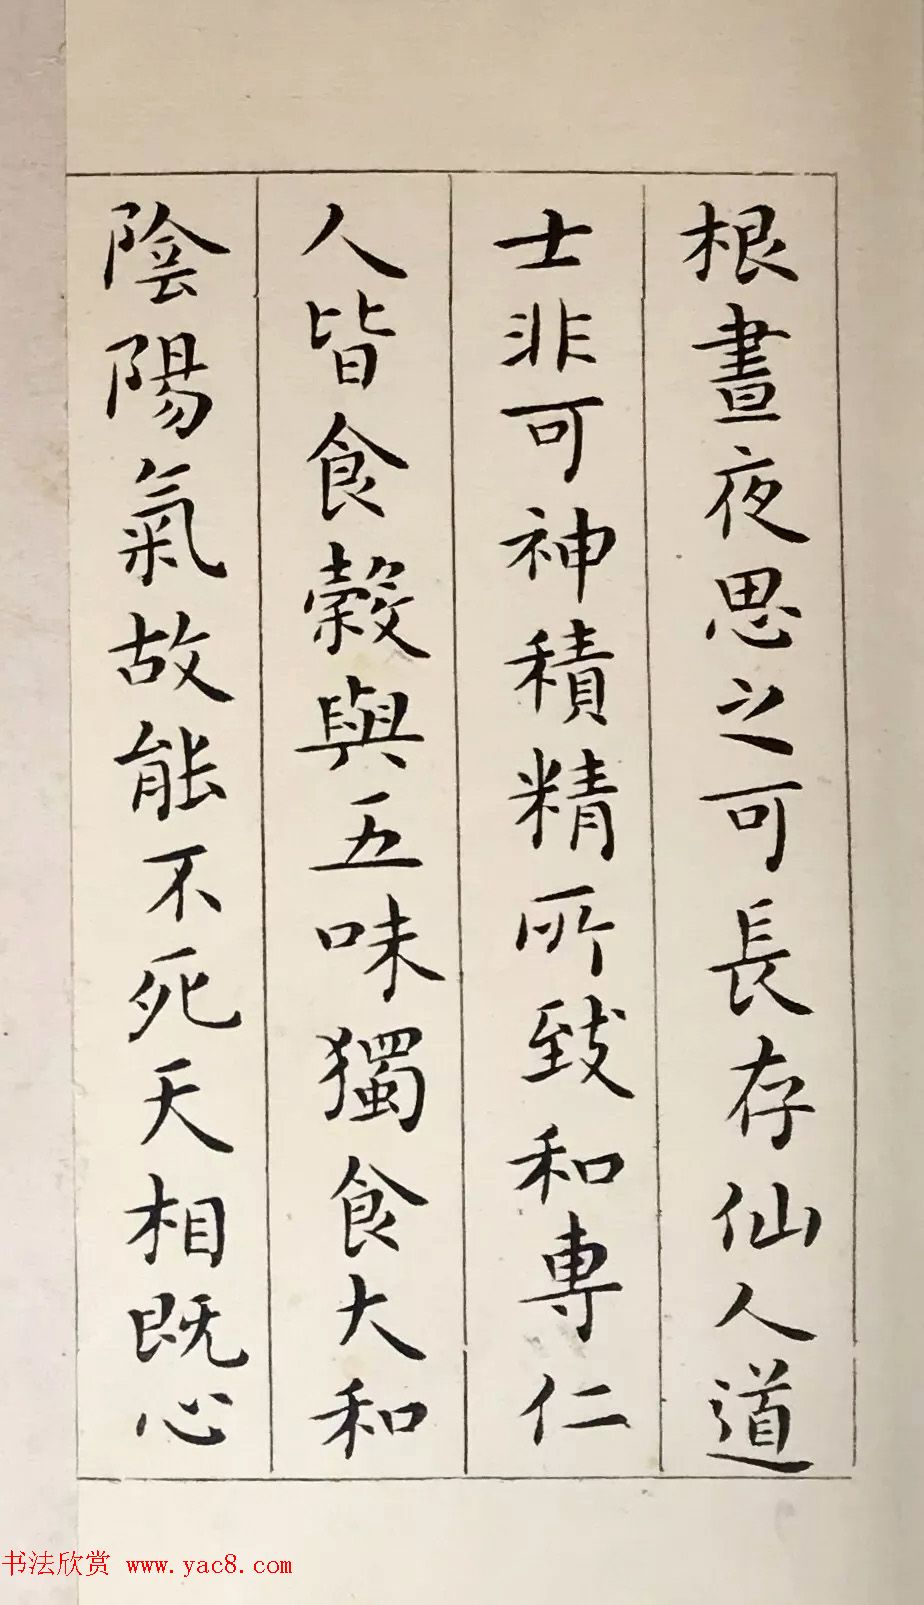 根晝夜思之可長存仙人道
士非可神積精所致和專仁
人皆食穀與五味獨食大和
陰陽氣故能不死天相既心
书法欣赏 www.yac8.com